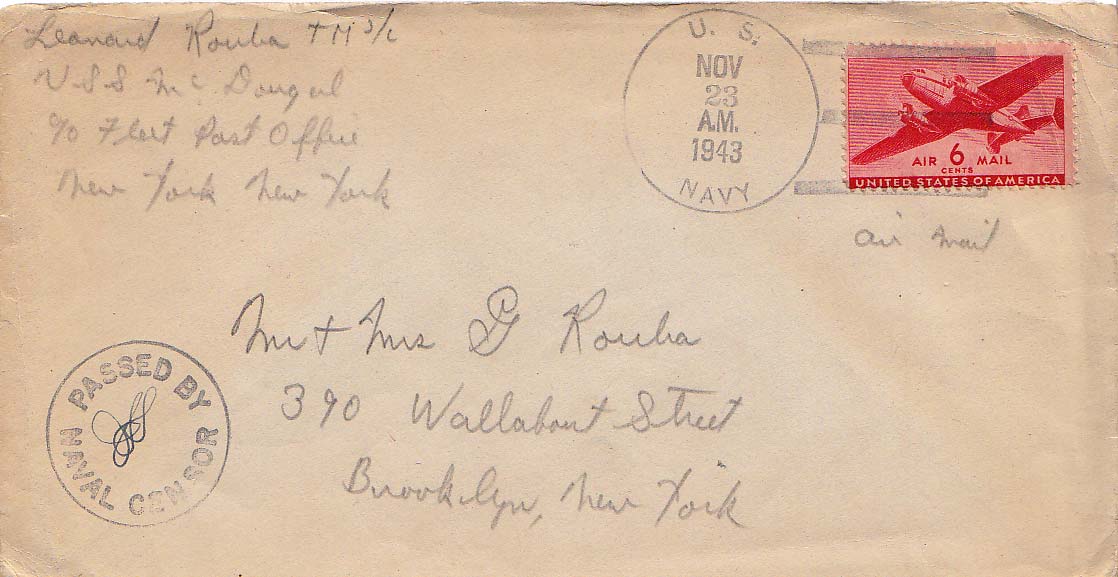 Leonard Rouba TM 3/c
USS McDougal
c/o Fleet Post Office
New York New York
U. S.
NOV
23
A.M.
1943
NAVY
AIR 6 MAIL
CENTS
UNITED STATES OF AMERICA
Air Mail
Mr + Mrs G Rouba
390 Wallabout Street
Brooklyn, New York
PASSED BY
NAVAL CENSOR